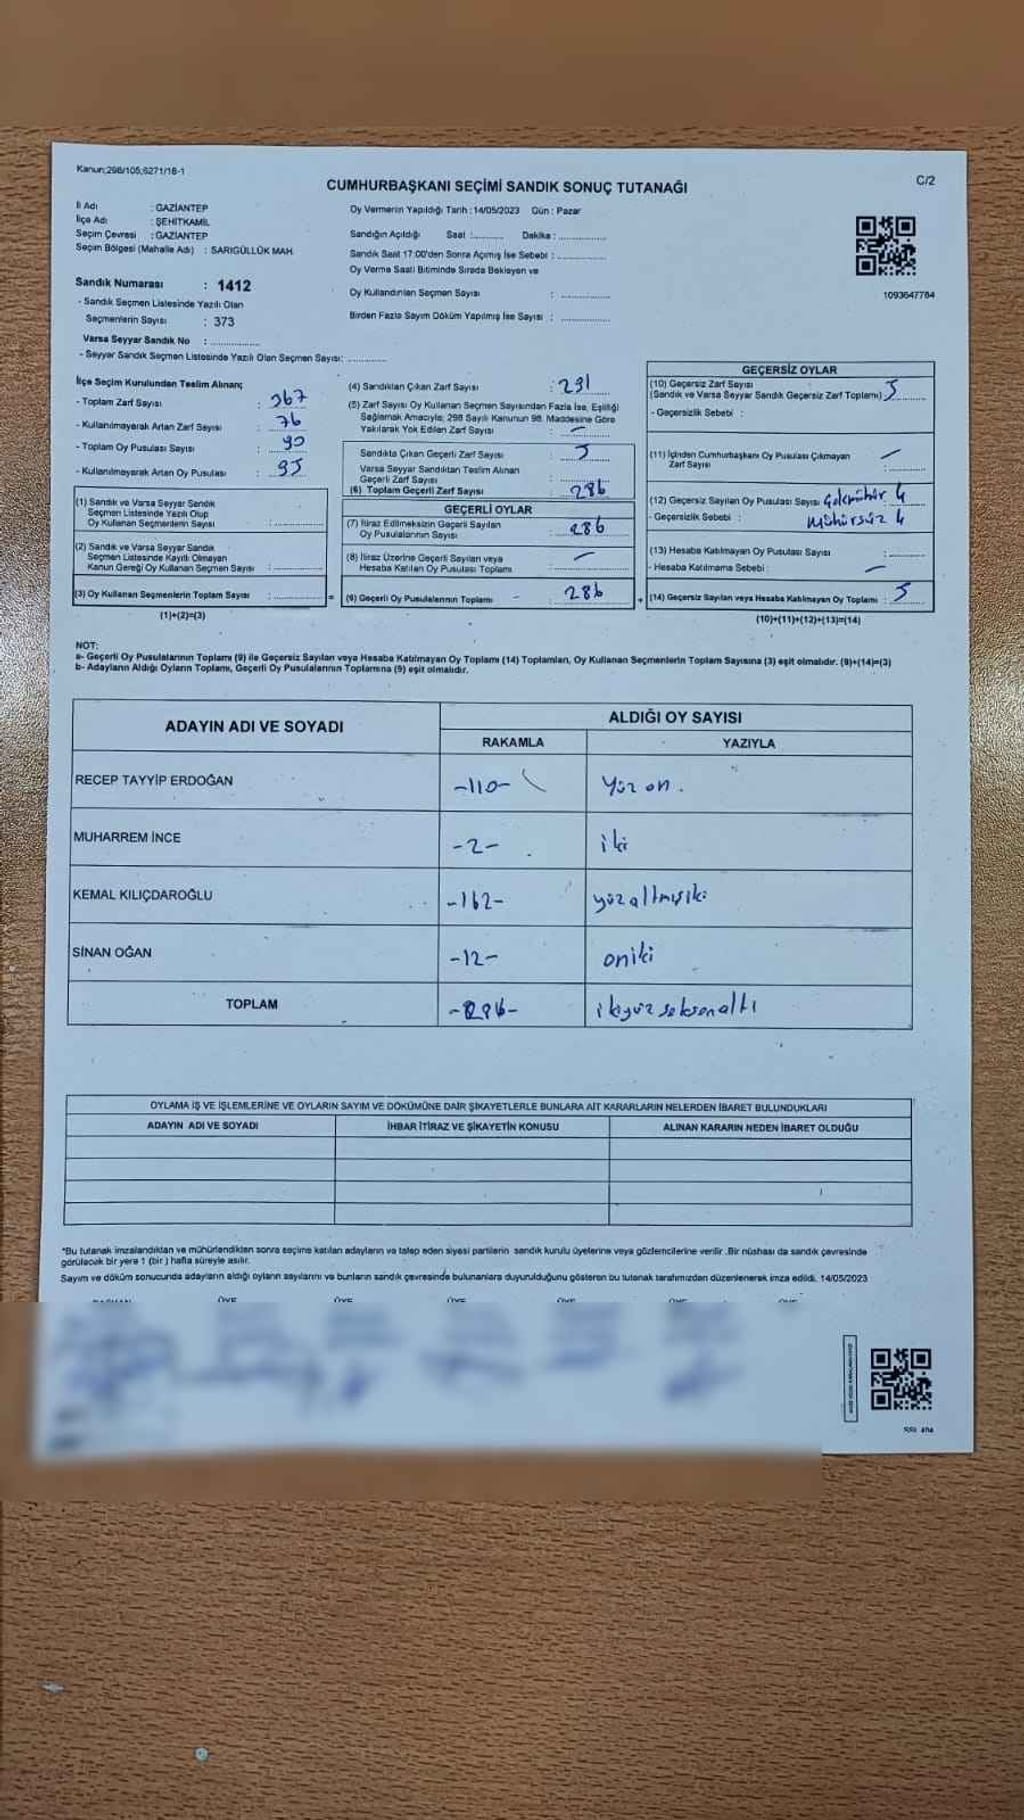 Kanun;298/105;6271/18-1
CUMHURBAŞKANI SEÇİMİ SANDIK SONUÇ TUTANAĞI
C/2
İl Adı : GAZİANTEP
İlçe Adı : ŞEHİTKAMİL
Seçim Çevresi : GAZİANTEP
Seçim Bölgesi (Mahalle Adı) : SARIGÜLLÜK MAH.
Oy Vermenin Yapıldığı Tarih :14/05/2023 Gün : Pazar
Sandığın Açıldığı Saat : Dakika :
Sandık Saat 17:00'den Sonra Açımış İse Sebebi :
Oy Verme Saati Bitiminde Sırada Bekleyen ve
Oy Kullandırılan Seçmen Sayısı :
Birden Fazla Sayım Döküm Yapılmış İse Sayısı :
1093647764
Sandık Numarası : 1412
- Sandık Seçmen Listesinde Yazılı Olan
Seçmenlerin Sayısı : 373
Varsa Seyyar Sandık No :
- Seyyar Sandık Seçmen Listesinde Yazılı Olan Seçmen Sayısı:
İlçe Seçim Kurulundan Teslim Alınan;
- Toplam Zarf Sayısı : 367
- Kullanılmayarak Artan Zarf Sayısı : 76
- Toplam Oy Pusulası Sayısı :
- Kullanılmayarak Artan Oy Pusulası :
(1) Sandık ve Varsa Seyyar Sandık
Seçmen Listesinde Yazılı Olup
Oy Kullanan Seçmenlerin Sayısı :
(2) Sandık ve Varsa Seyyar Sandık
Seçmen Listesinde Kayıtlı Olmayan
Kanun Gereği Oy Kullanan Seçmen Sayısı :
(3) Oy Kullanan Seçmenlerin Toplam Sayısı : =
(1)+(2)=(3)
(4) Sandıktan Çıkan Zarf Sayısı : 291
(5) Zarf Sayısı Oy Kullanan Seçmen Sayısından Fazla İse, Eşitliği
Sağlamak Amacıyla; 298 Sayılı Kanunun 98. Maddesine Göre
Yakılarak Yok Edilen Zarf Sayısı : –
Sandıkta Çıkan Geçerli Zarf Sayısı : 5
Varsa Seyyar Sandıktan Teslim Alınan
Geçerli Zarf Sayısı :
(6) Toplam Geçerli Zarf Sayısı : 286
GEÇERLİ OYLAR
(7) İtiraz Edilmeksizin Geçerli Sayılan
Oy Pusulalarının Sayısı : 286
(8) İtiraz Üzerine Geçerli Sayılan veya
Hesaba Katılan Oy Pusulası Toplamı : –
(9) Geçerli Oy Pusulalarının Toplamı : 286 +
GEÇERSİZ OYLAR
(10) Geçersiz Zarf Sayısı
(Sandık ve Varsa Seyyar Sandık Geçersiz Zarf Toplamı) : 5
- Geçersizlik Sebebi :
(11) İçinden Cumhurbaşkanı Oy Pusulası Çıkmayan
Zarf Sayısı : –
(12) Geçersiz Sayılan Oy Pusulası Sayısı :
- Geçersizlik Sebebi : Mühürsüz 4
(13) Hesaba Katılmayan Oy Pusulası Sayısı :
- Hesaba Katılmama Sebebi : –
(14) Geçersiz Sayılan veya Hesaba Katılmayan Oy Toplamı : 5
(10)+(11)+(12)+(13)=(14)
NOT:
a- Geçerli Oy Pusulalarının Toplamı (9) ile Geçersiz Sayılan veya Hesaba Katılmayan Oy Toplamı (14) Toplamları, Oy Kullanan Seçmenlerin Toplam Sayısına (3) eşit olmalıdır. (9)+(14)=(3)
b- Adayların Aldığı Oyların Toplamı, Geçerli Oy Pusulalarının Toplamına (9) eşit olmalıdır.
ADAYIN ADI VE SOYADI
ALDIĞI OY SAYISI
RAKAMLA YAZIYLA
RECEP TAYYİP ERDOĞAN -110- Yüz on.
MUHARREM İNCE -2- iki
KEMAL KILIÇDAROĞLU -162- yüzaltmışiki
SİNAN OĞAN -12- oniki
TOPLAM -286- ikiyüz seksenaltı
OYLAMA İŞ VE İŞLEMLERİNE VE OYLARIN SAYIM VE DÖKÜMÜNE DAİR ŞİKAYETLERLE BUNLARA AİT KARARLARIN NELERDEN İBARET BULUNDUKLARI
ADAYIN ADI VE SOYADI İHBAR İTİRAZ VE ŞİKAYETİN KONUSU ALINAN KARARIN NEDEN İBARET OLDUĞU
*Bu tutanak imzalandıktan ve mühürlendikten sonra seçime katılan adayların ve talep eden siyasi partilerin sandık kurulu üyelerine veya gözlemcilerine verilir .Bir nüshası da sandık çevresinde
görülecek bir yere 1 (bir ) hafta süreyle asılır.
Sayım ve döküm sonucunda adayların aldığı oyların sayılarını ve bunların sandık çevresinde bulunanlara duyurulduğunu gösteren bu tutanak tarafımızdan düzenlenerek imza edildi. 14/05/2023
BAŞKAN ÜYE ÜYE ÜYE ÜYE ÜYE ÜYE